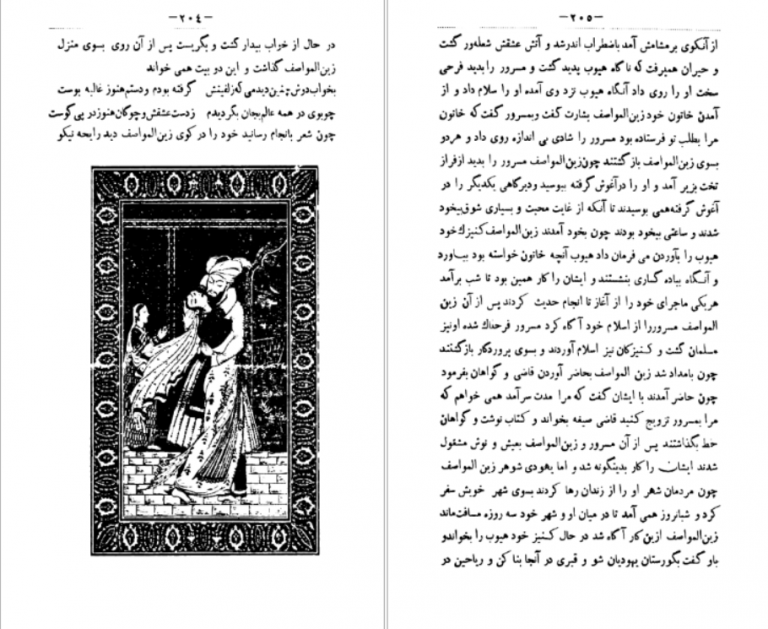 -٢٠٤-
در حال از خواب بیدار گشت و بگریست پس از آن روی بسوی منزل
زین‌المواصف گذاشت و این دو بیت همی خواند
بخواب دوش چنین دیدمی که زلفینش گرفته بودم و دستم هنوز غالیه بوست
چوبوی در همه عالم بجان بگردیدم ز دست عشقش و چوگان هنوز در پی گوست
چون شعر بانجام رسانید خود را در کوی زین‌المواصف دید رایحه نیکو
-٢٠٥-
از آنکوی بر مشامش آمد باضطراب اندر شد و آتش عشقش شعله‌ور گشت
و حیران همیرفت که ناگاه هبوب پدید گشت و مسرور را بدید فرحی
سخت او را روی داد آنگاه هبوب نزد وی آمده او را سلام داد و از
آمدن خاتون خود زین‌المواصف بشارت گفت و بمسرور گفت که خاتون
مرا بطلب تو فرستاده بود مسرور را شادی بی اندازه روی داد و هر دو
بسوی زین‌المواصف باز گشتند چون زین‌المواصف مسرور را بدید از فراز
تخت بزیر آمد و او را در آغوش گرفته ببوسید و دیر گاهی یکدیگر را در
آغوش گرفته همی بوسیدند تا آنکه از غایت محبت و بسیاری شوق بیخود
شدند و ساعتی بیخود بودند چون بخود آمدند زین‌المواصف کنیزك خود
هبوب را بآوردن می فرمان داد هبوب آنچه خاتون خواسته بود بیاورد
و آنگاه بباده گساری بنشستند و ایشان را کار همین بود تا شب برآمد
هریکی ماجرای خود را از آغاز تا انجام حدیث کردند پس از آن زین
المواصف مسرور را از اسلام خود آگاه کرد مسرور فرحناك شده او نیز
مسلمان گشت و کنیزکان نیز اسلام آوردند و بسوی پروردگار بازگشتند
چون بامداد شد زین المواصف بحاضر آوردن قاضی و گواهان بفرمود
چون حاضر آمدند با ایشان گفت که مرا مدت سر آمد همی خواهم که
مرا بمسرور تزویج کنید قاضی صیغه بخواند و کتاب نوشت و گواهان
خط بگذاشتند پس از آن مسرور و زین‌المواصف بعیش و نوش مشغول
شدند ایشان را کار بدینگونه شد و اما یهودی شوهر زین المواصف
چون مردمان شهر او را از زندان رها کردند بسوی شهر خویش سفر
کرد و شبانروز همی آمد تا در میان او و شهر خود سه روزه مسافت ماند
زین‌المواصف ازین کار آگاه شد در حال کنیز خود هبوب را بخواند و
باو گفت بگورستان یهودیان شو و قبری در آنجا بنا کن و ریاحین در